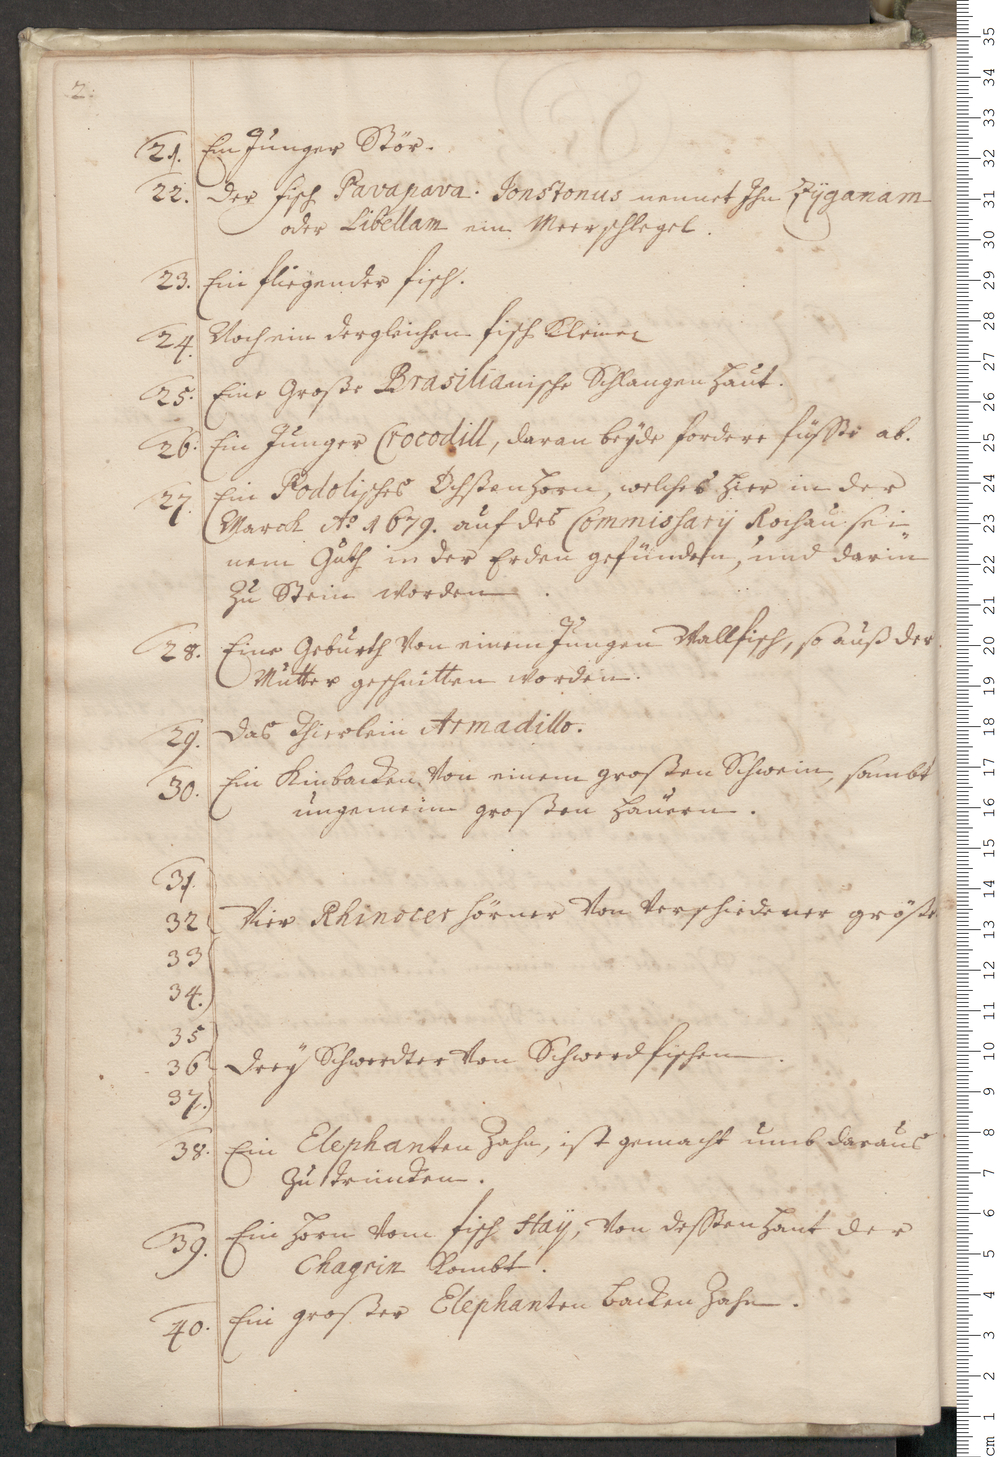 2.
21. Ein Junger Stör.
22. Der fisch Pavapava. Jonstonus nennet Ihn Zÿganam
oder Libellam ein Meerschlegel.
23. Ein fliegender fisch.
24. Noch ein dergleichen fisch Kleiner
25. Eine Große Brasilianische Schlangen Haut.
26. Ein Junger Crocodill, daran beÿde fordere füsse ab.
27. Ein Podolisches Ochßenhorn, welches hier in der
Marck Aº 1679. auf des Commissarÿ Rochau sei
nem Guth in der Erden gefunden, und darin
zu Stein worden.
28. Eine Geburth von einem Jungen Wallfisch, so auß der
Mutter geschnitten worden.
29. Das Thierlein Armadillo.
30. Ein Kinbacken von einem großen Schwein, sambt
ungemein großen Hauern.
31.
32 Vier Rhinocer hörner von verschiedener größe
33
34.
35
36 Dreÿ Schwerdter von Schwerdfischen.
37.
38. Ein Elephanten Zahn, ist gemacht umb daraus
zu trincken.
39. Ein Horn vom fisch Haÿ, von dessen Haut der
Chagrin kombt.
40. Ein großer Elephanten Backen Zahn.
35
34
33
32
31
30
29
28
27
26
25
24
23
22
21
20
19
18
17
16
15
14
13
12
11
10
9
8
7
6
5
4
3
2
1
cm